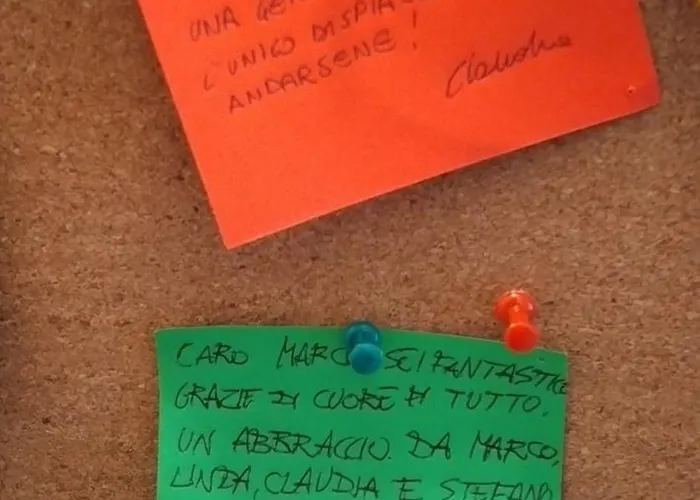 UNA
L'UNICO DISPIA
ANDARSENE!
Claudia
CARO MARCO SEI FANTASTICO
GRAZIE DI CUORE DI TUTTO.
UN ABBRACCIO DA MARCO,
LINDA, CLAUDIA E STEFANO